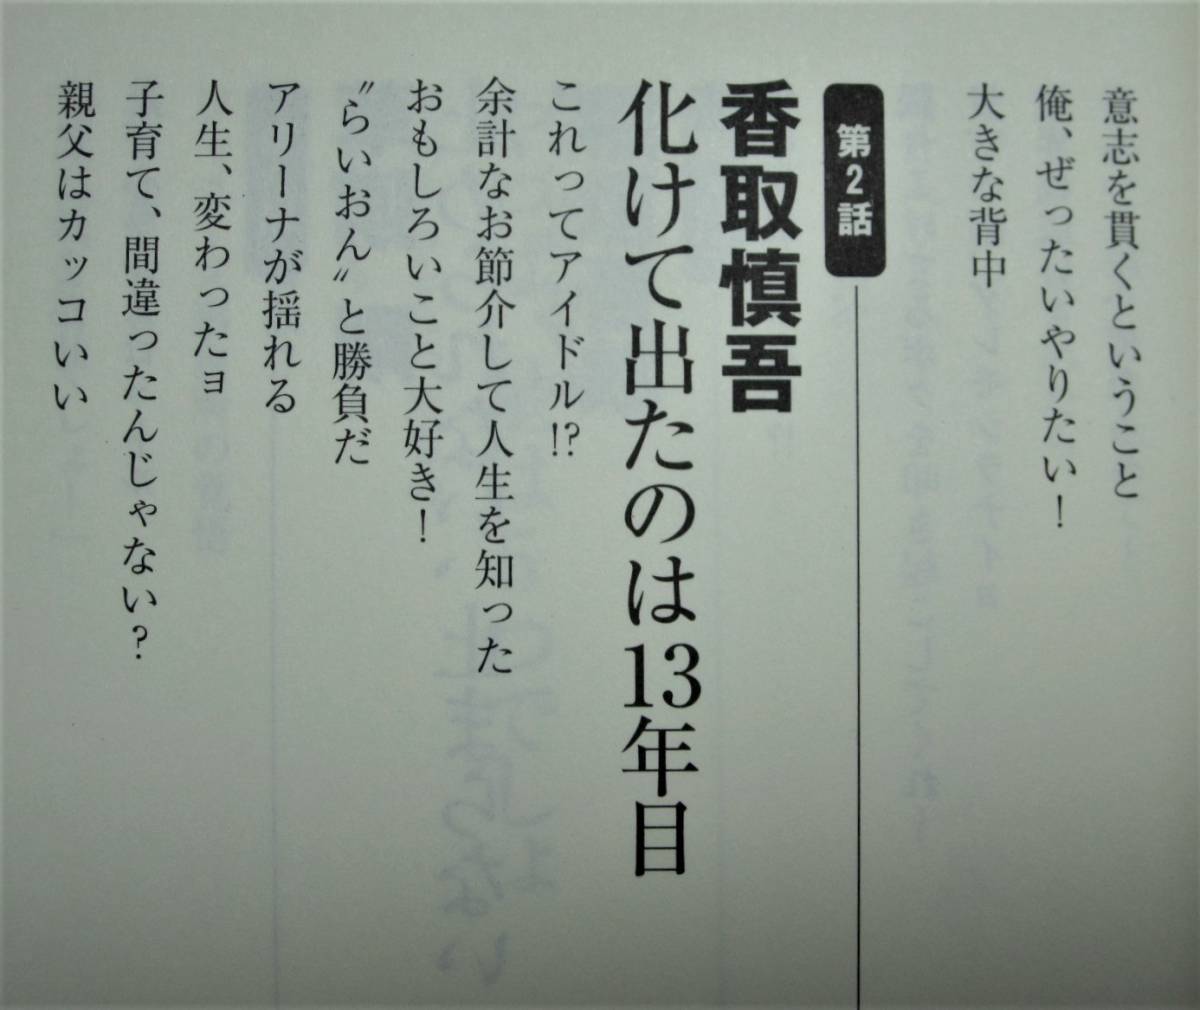 意志を貫くということ
俺、ぜったいやりたい！
大きな背中
第2話
香取慎吾
化けて出たのは13年目
これってアイドル!?
余計なお節介して人生を知った
おもしろいこと大好き！
〝らいおん〟と勝負だ
アリーナが揺れる
人生、変わったョ
子育て、間違ったんじゃない？
親父はカッコいい